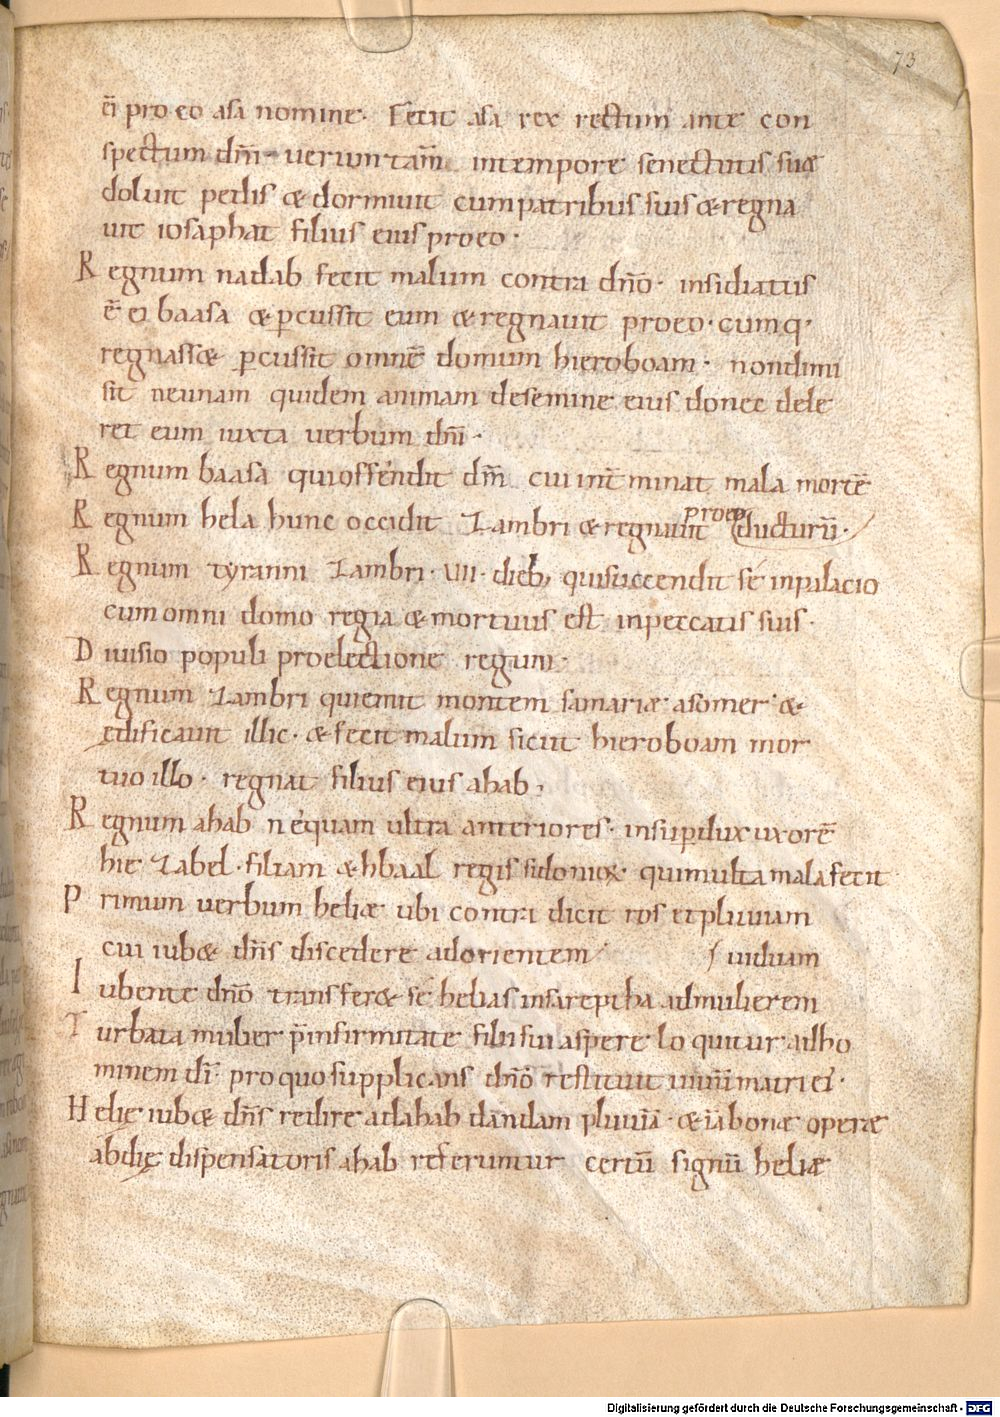 73
ei͂ pro eo asa nomine. Fecit asa rex rectum ante con
spectum dn̄i uerumtam̄ intempore senectutis suę
doluit pedis & dormiuit cum patribus suis & regna
uit iosaphat filius eius proeo.
Regnum nadab fecit malum contra dn̄o. insidiatus
ē ei baasa & ꝑcussit eum & regnauit proeo. cumq.
regnass& ꝑcussit omnē domum hieroboam. nondimi
sit neunam quidem animam desemine eius donec dele
ret eum iuxta uerbum dn̄i.
Regnum baasa quioffendit dn̄m cui int̄minat mala mortē
Regnum hela hunc occidit Zambri & regnauit proeo ducturū.
Regnum tyranni Zambri. VII. dieb; quisuccendit sé inpalacio
cumomni domo regia & mortuus est inpeccatis suis.
Diuisio populi proelectione regum.
Regnum Zambri quiemit montem samariæ asomer. &
ędificauit illic. & fecit malum sicut hieroboam mor
tuo illo. regnat filius eius ahab.
Regnum ahab néquam ultra anteriores. insuꝑdux uxorē
hie Zabel. filiam & hbaal regis sidoniorꝝ. quimulta mala fecit
Primum uerbum heliæ ubi contra dicit ros et pluuiam
cui iub& dn̄s discedere adorientem uiduam
Iubente dn̄o transfer& sé helias insareptha admulierem
Turbata mulier p̄infirmitate filii sui aspere loquitur adho
minem dī. pro quo supplicans dn̄o restituit uiuū matri ei.
Helię iub& dn̄s redire adahab dandam pluuiā. & iā bonæ operæ
abdię dispensatoris ahab referuntur certū signū heliæ
Digitalisierung gefördert durch die Deutsche Forschungsgemeinschaft - DFG